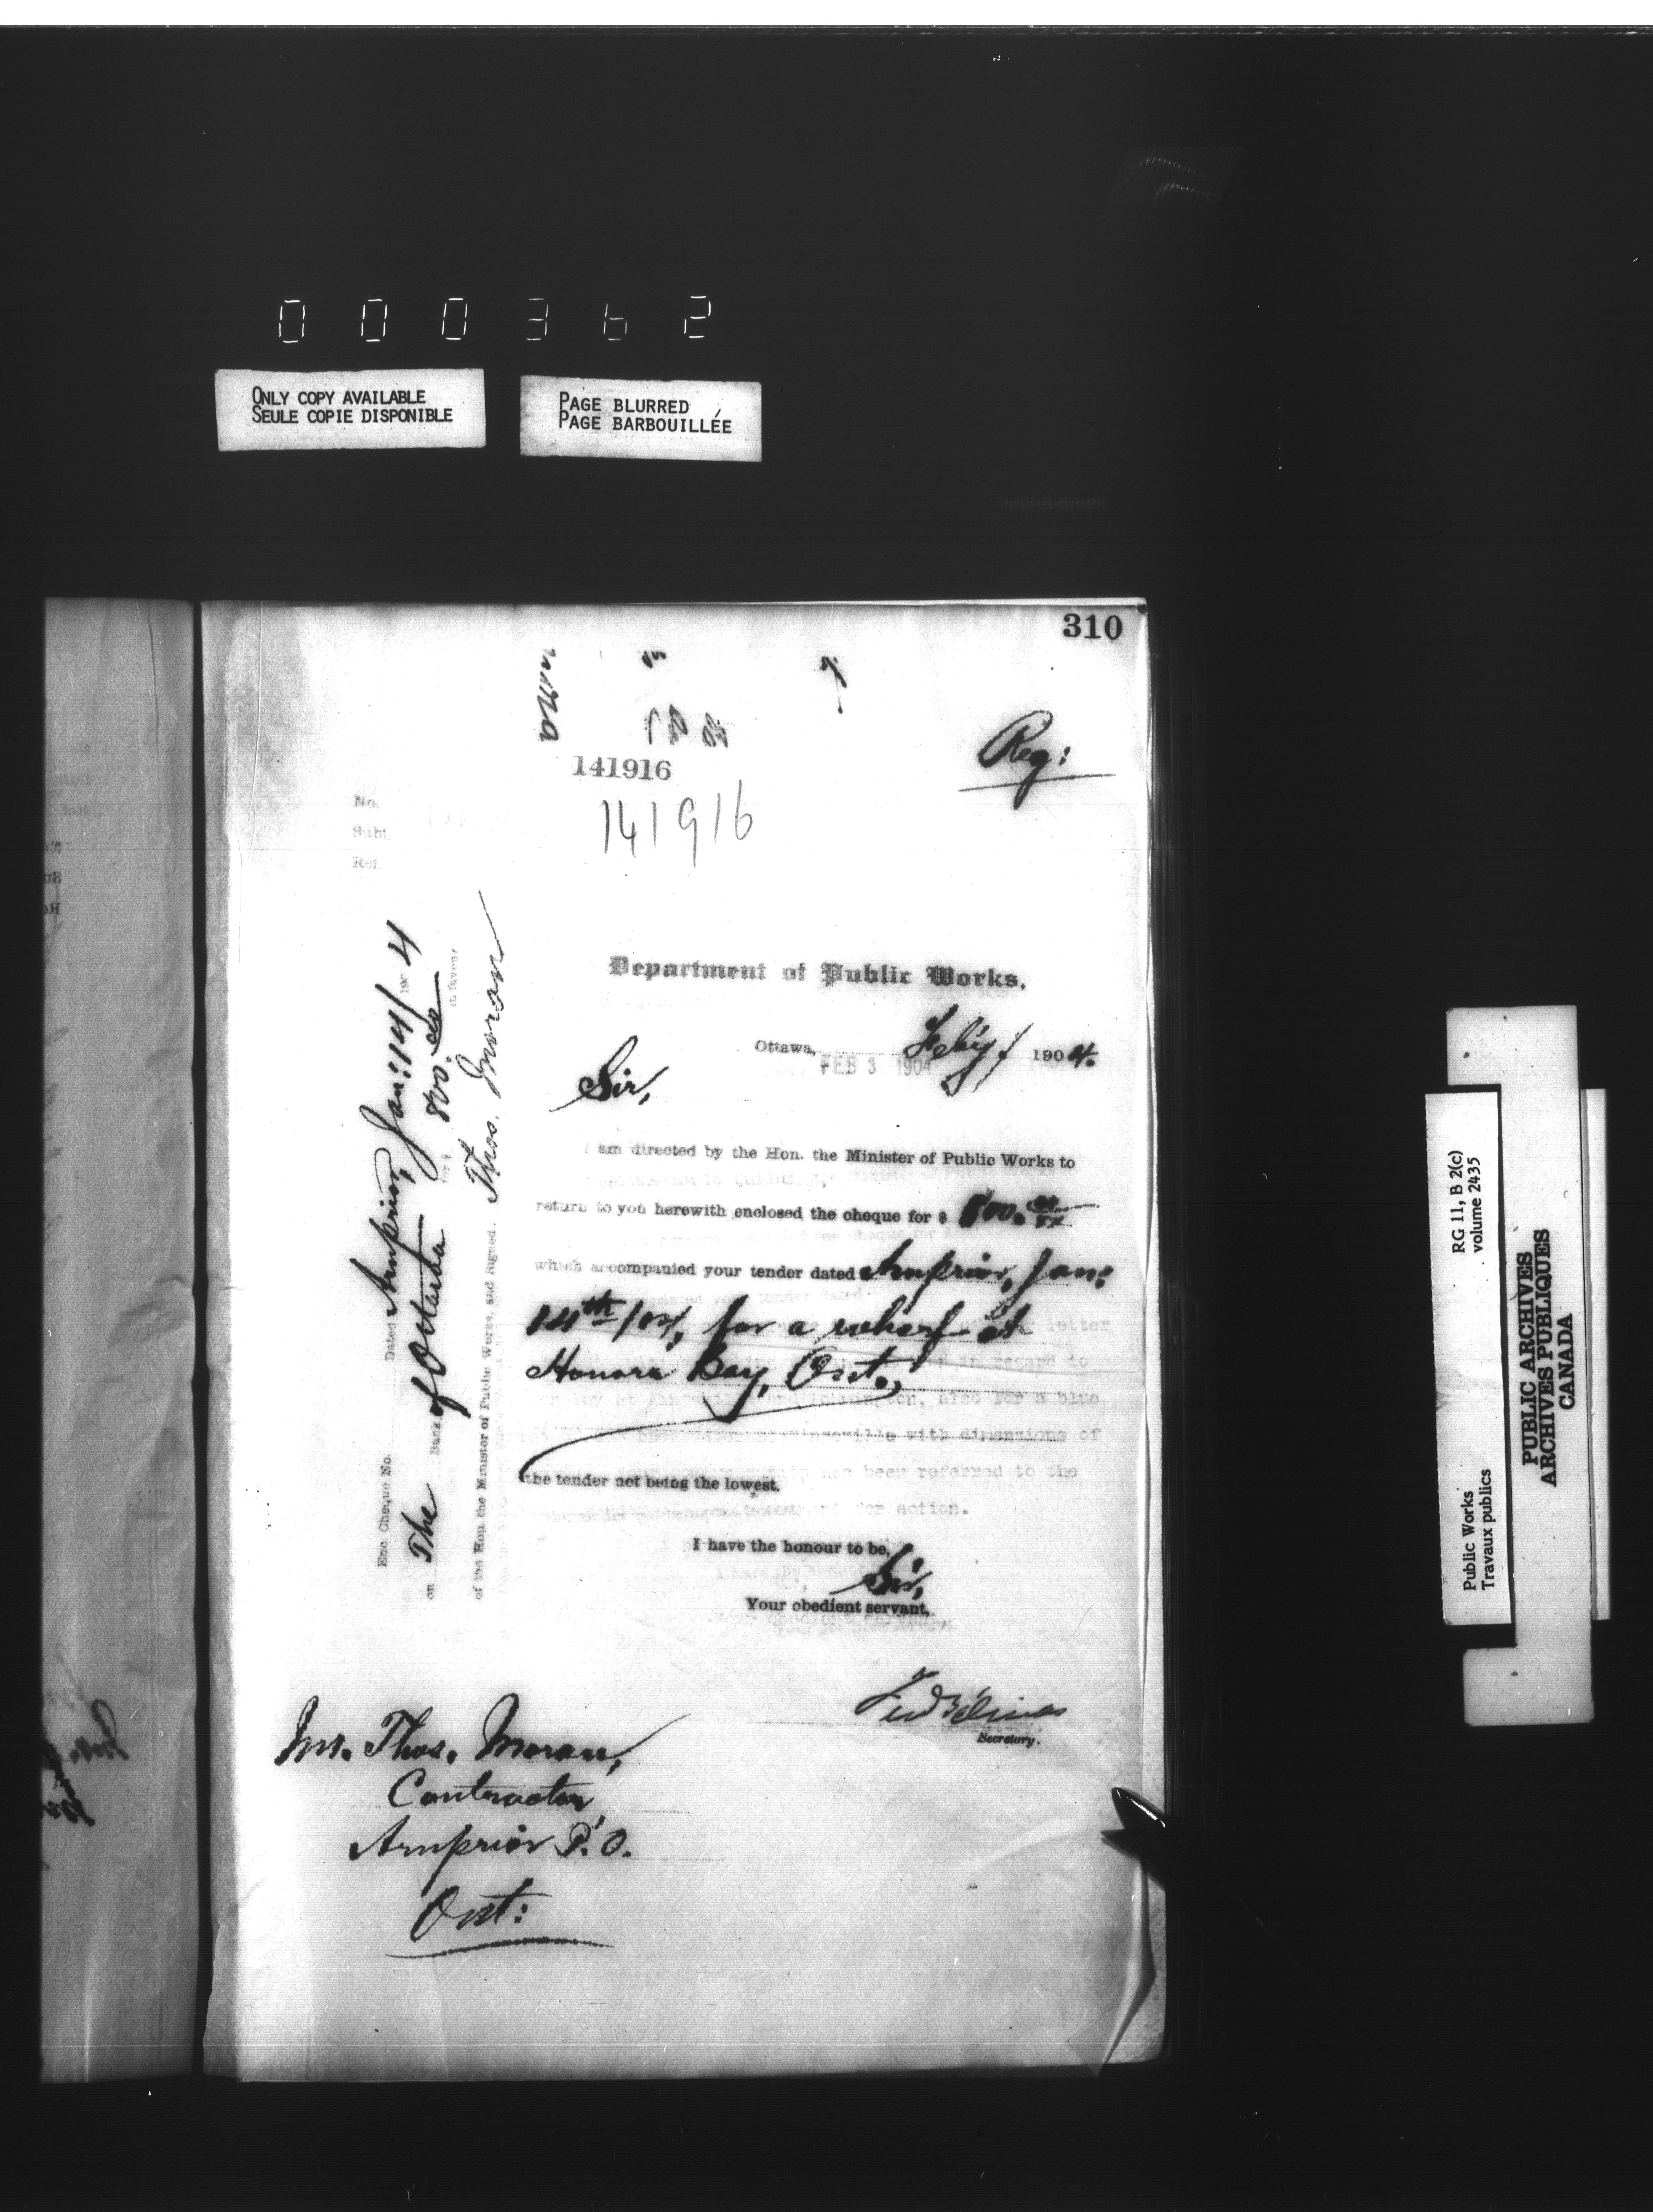 000362
ONLY COPY AVAILABLE
SEULE COPIE DISPONIBLE
PAGE BLURRED
PAGE BARBOUILLÉE
310
Reg:
141916
141916
No.
Subt.
Ref.
Department of Public Works.
Ottawa, Feb'y 1904.
FEB 3 1904
Sir,
I am directed by the Hon. the Minister of Public Works to
return to you herewith enclosed the cheque for $ 800.00/xx
which accompanied your tender dated Arnprior, Jan:
14th/04, for a wharf at
Honora Bay, Ont.,
the tender not being the lowest.
I have the honour to be,
Sir,
Your obedient servant,
Secretary.
Mr. Thos. Moran,
Contractor,
Arnprior P.O.
Ont:
Enc. Cheque No. Dated Arnprior, Jan: 14/ 1904
on The Bank of Ottawa for $ 800.00 in favour
of the Hon. the Minister of Public Works, and signed. Thos. Moran
letter
in regard to
also for a blue
with dimensions of
has been referred to the
for action.
RG 11, B 2(c)
volume 2435
Public Works
Travaux publics
PUBLIC ARCHIVES
ARCHIVES PUBLIQUES
CANADA